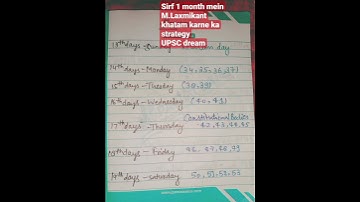 Sirf 1 month mein
M.Laxmikant
khatam karne ka
strategy
UPSC dream
13th days - day
14th days - Monday (34,35,36,37)
15th days - Tuesday (38,39)
16th days - Wednesday (40,41)
Constitutional Bodies
17th days - Thursday 42,43,44,45
18th days - Friday 46,47,48,49
19th days - Saturday 50,51,52,53